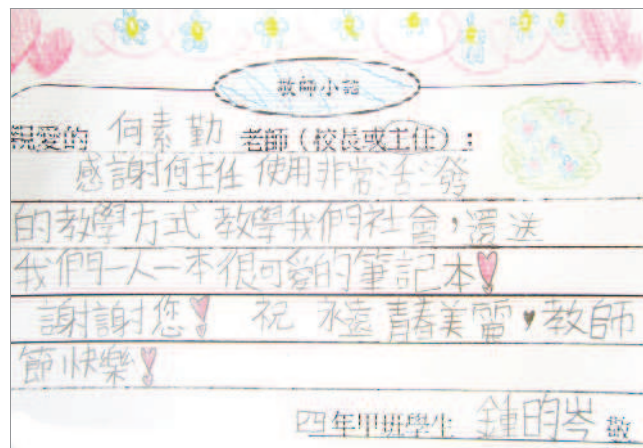 敬師小語
親愛的 何素勤 老師（校長或主任）：
感謝何主任 使用非常活潑
的教學方式 教學我們社會，還送
我們一人一本很可愛的筆記本！
謝謝您！ 祝 永遠青春美麗，教師
節快樂！
四年甲班學生 鍾昀岑 敬